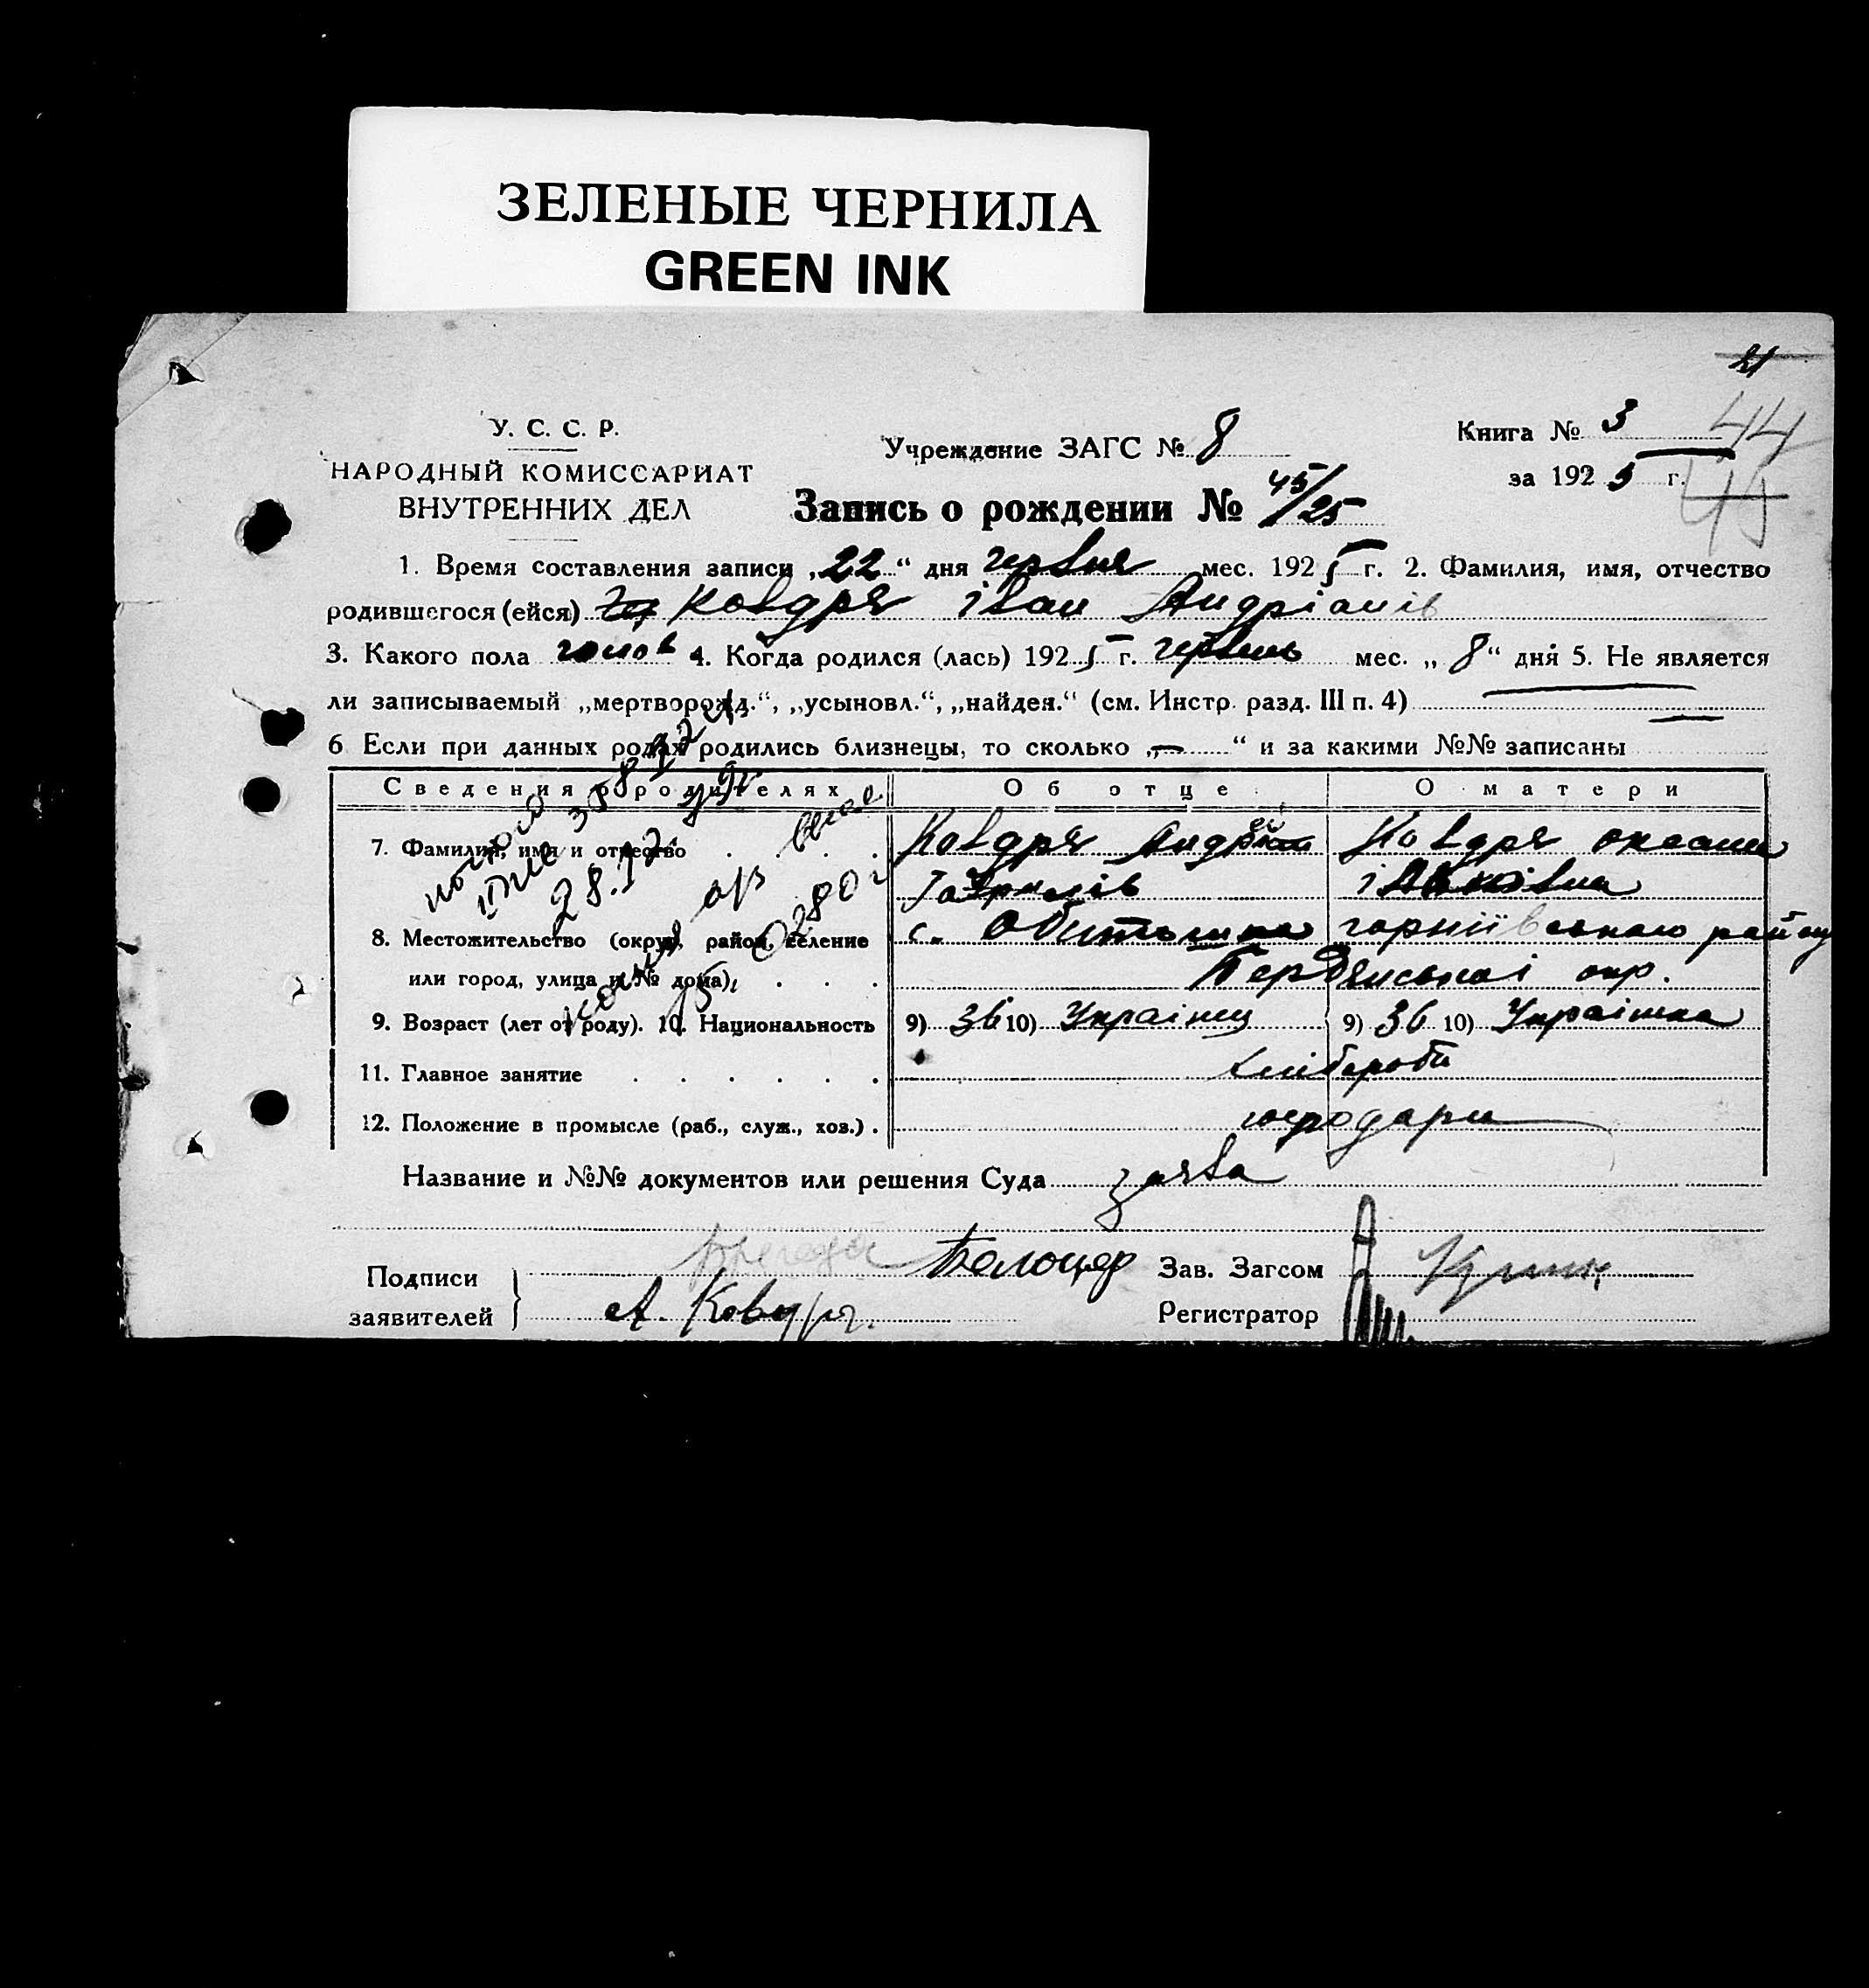 ЗЕЛЕНЫЕ ЧЕРНИЛА
GREEN INK
У. С. С. Р.
НАРОДНЫЙ КОМИССАРИАТ
ВНУТРЕННИХ ДЕЛ
Учреждение ЗАГС № 8
Книга № 3
44
за 192 5 г.
Запись о рождении № 45/25
1. Время составления записи „22“ дня червня мес. 1925 г. 2. Фамилия, имя, отчество
родившегося (ейся) Ковдря Іван Андріанів
3. Какого пола чолов 4. Когда родился (лась) 1925 г. червень мес. „8“ дня 5. Не является
ли записываемый „мертворожд.“, „усыновл.“, „найден.“ (см. Инстр. разд. III п. 4)
6 Если при данных родах родились близнецы, то сколько „—“ и за какими №№ записаны
Сведения о родителях Об отце О матери
7. Фамилия, имя и отчество Ковдря Андрей Ковдря Оксана
Гаврилів
8. Местожительство (округ, район, селение с. Обиточна
или город, улица и № дома) Бердянської окр.
9. Возраст (лет от роду). 10. Национальность 9) 36 10) Українец 9) 36 10) Українка
11. Главное занятие хлібороби
12. Положение в промысле (раб., служ., хоз.) господари
Название и №№ документов или решения Суда заява
Подписи
заявителей А. Ковдря
Зав. Загсом
Регистратор
28.12.